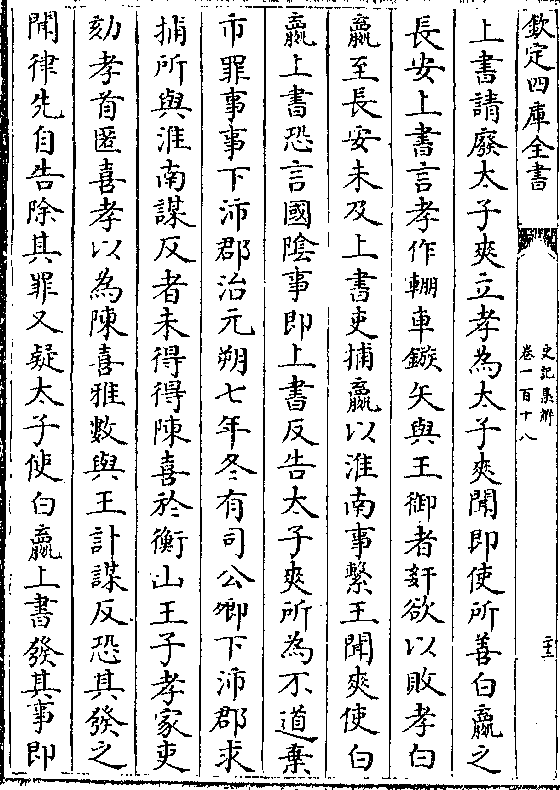 欽定四庫全書
史記集解
卷一百十八
上書請廢太子爽立孝為太子爽聞即使所善白嬴之
長安上書言孝作輣車鏃矢與王御者姧欲以敗孝白
嬴至長安未及上書吏捕嬴以淮南事繫王聞爽使白
嬴上書恐言國隂事即上書反告太子爽所為不道棄
市罪事事下沛郡治元朔七年冬有司公卿下沛郡求
捕所與淮南謀反者未得得陳喜於衡山王子孝家吏
劾孝首匿喜孝以為陳喜雅數與王計謀反恐其發之
聞律先自告除其罪又疑太子使白嬴上書發其事即